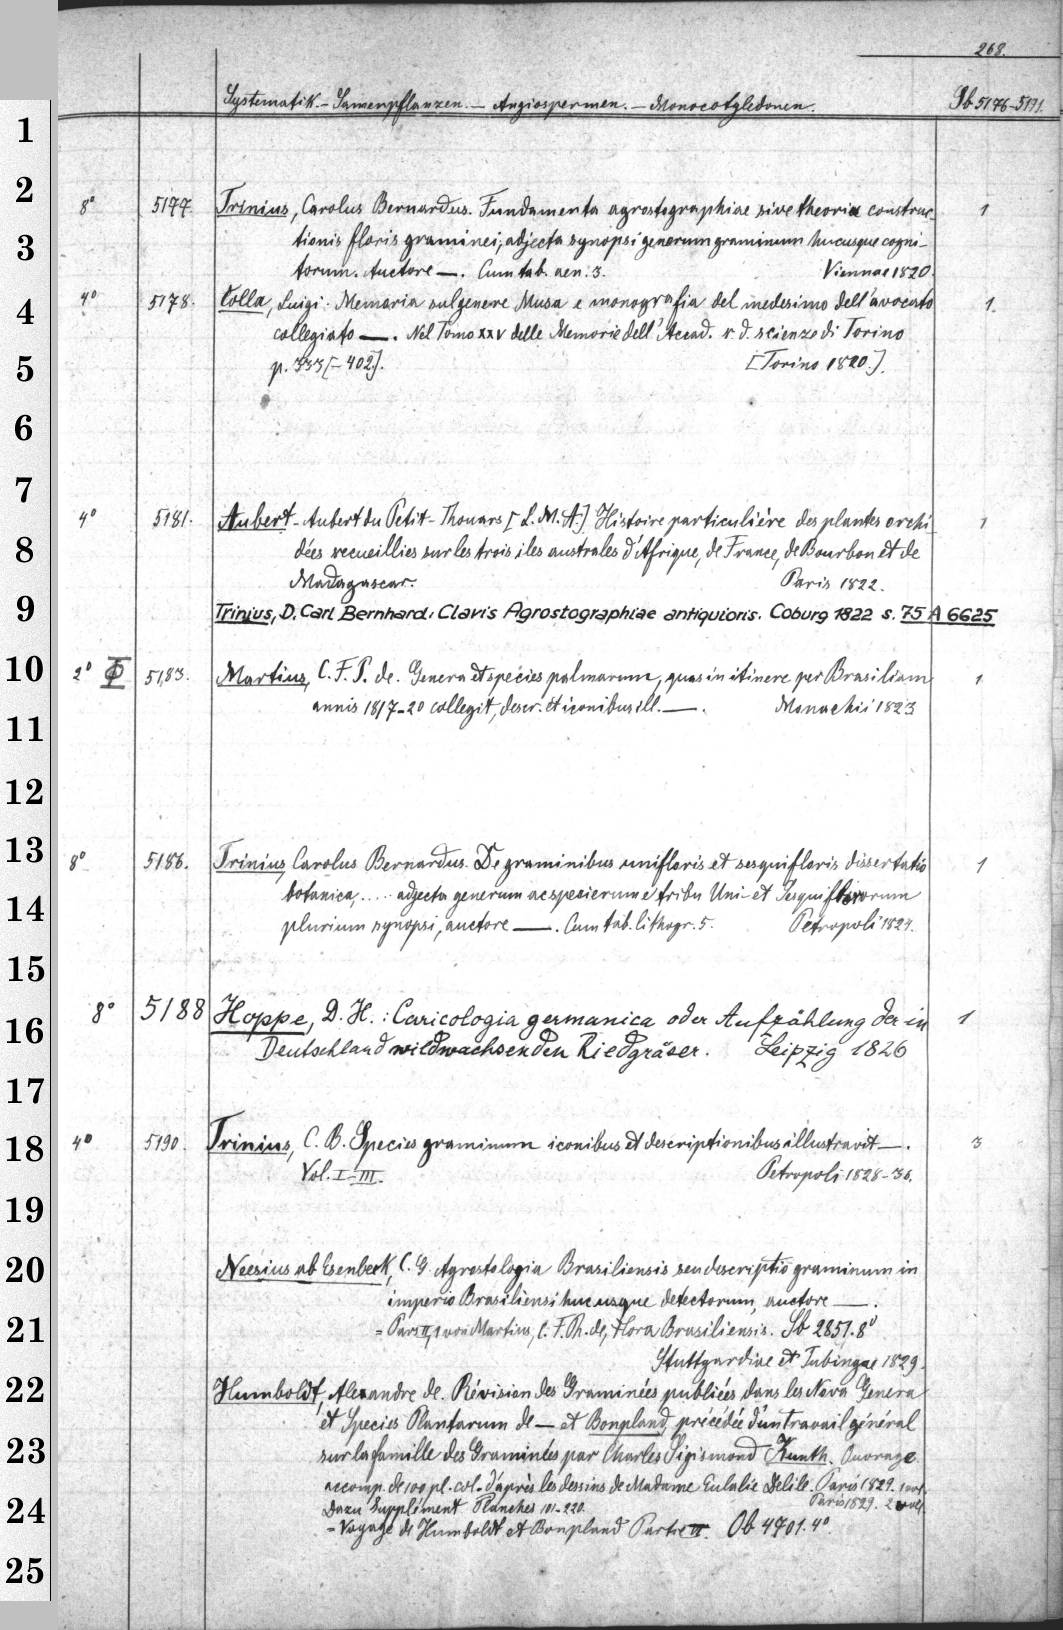 268.
Systematik. - Samenpflanzen. - Angiospermen. - Monocotyledonen. Sb 5176-5191.
1
2
3
4
5
6
7
8
9
10
11
12
13
14
15
16
17
18
19
20
21
22
23
24
25
8° 5177 Trinius, Carolus Bernardus. Fundamenta agrostographiae sive theoria construc- 1
tionis floris graminei; adjecta synopsi generum graminum hucusque cogni-
torum. Auctore —. Cum tab. aen. 3. Viennae 1820.
4° 5178. Colla, Luigi. Memoria sul genere Musa e monografia del medesimo dell'avocato 1.
collegiato —. Nel Tomo XXV delle Memorie dell'Accad. r. d. scienze di Torino
p. 333 [- 402]. [Torino 1820.].
4° 5181. Aubert-Aubert du Petit-Thouars [L. M. A.] Histoire particulière des plantes orchi- 1
dées recueillies sur les trois iles australes d'Afrique, de France, de Bourbon et de
Madagascar. Paris 1822.
Trinius, D. Carl Bernhard: Clavis Agrostographiae antiquioris. Coburg 1822 s. 75 A 6625
2° Φ 5183. Martius, C. F. P. de. Genera et species palmarum, quas in itinere per Brasiliam 1
annis 1817-20 collegit, descr. et iconibus ill. —. Monachii 1823
8° 5186. Trinius, Carolus Bernardus. De graminibus unifloris et sesquifloris dissertatio 1
botanica, .... adjecta generum ac specierum e tribu Uni- et Sesquiflororum
plurium synopsi, auctore —. Cum tab. lithogr. 5. Petropoli 1824.
8° 5188 Hoppe, D. H.: Caricologia germanica oder Aufzählung der in 1
Deutschland wildwachsenden Riedgräser. Leipzig 1826
4° 5190. Trinius, C. B. Species graminum iconibus et descriptionibus illustravit —. 3
Vol. I-III. Petropoli 1828-36.
Neesius ab Esenbeck, C. G. Agrostologia Brasiliensis seu descriptio graminum in
imperio Brasiliensi hucusque detectorum, auctore —.
= Pars II,1 von Martius, C. F. Ph. de, Flora Brasiliensis. Sb 2851.8°
Stuttgardiae et Tubingae 1829.
Humboldt, Alexandre de. Révision des Graminées publiées dans les Nova Genera
et Species Plantarum de — et Bonpland, précédée d'un travail général
sur la famille des Graminées par Charles Sigismond Kunth. Ouvrage
accomp. de 100 pl. col. d'après les dessins de Madame Eulalie Delile. Paris 1829. 1 vol.
Dazu Supplément Planches 101-220. Paris 1829. 2 vol.
= Voyage de Humboldt et Bonpland Partie VI. Ob 4701.4°